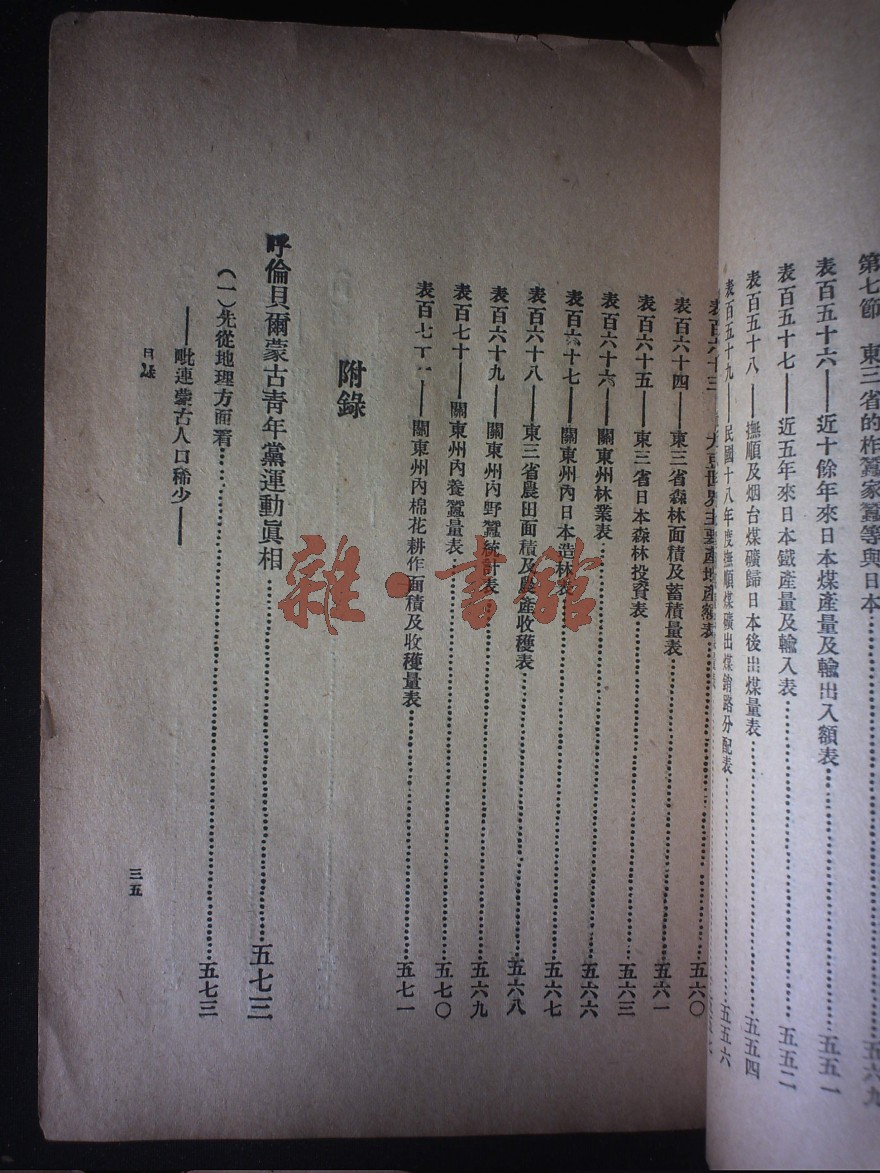 第七節　東三省的柞蠶家蠶等與日本……五六九
表百五十六——近十餘年來日本煤產量及輸出入額表……五五一
表百五十七——近五年來日本鐵產量及輸入表……五五二
表百五十八——撫順及烟台煤礦歸日本後出煤量表……五五四
表百五十九——民國十八年度撫順煤礦出煤銷路分配表……五五六
表百六十三——大豆世界主要產地產額表……五六〇
表百六十四——東三省森林面積及蓄積量表……五六一
表百六十五——東三省日本森林投資表……五六三
表百六十六——關東州林業表……五六六
表百六十七——關東州內日本造林表……五六七
表百六十八——東三省農田面積及農產收穫表……五六八
表百六十九——關東州內野蠶統計表……五六九
表百七十——關東州內養蠶量表……五七〇
表百七十一——關東州內棉花耕作面積及收穫量表……五七一
附錄
呼倫貝爾蒙古青年黨運動眞相……五七三
（一）先從地理方面看……五七三
——毗連蒙古人口稀少——
目錄
三五
雜·書館